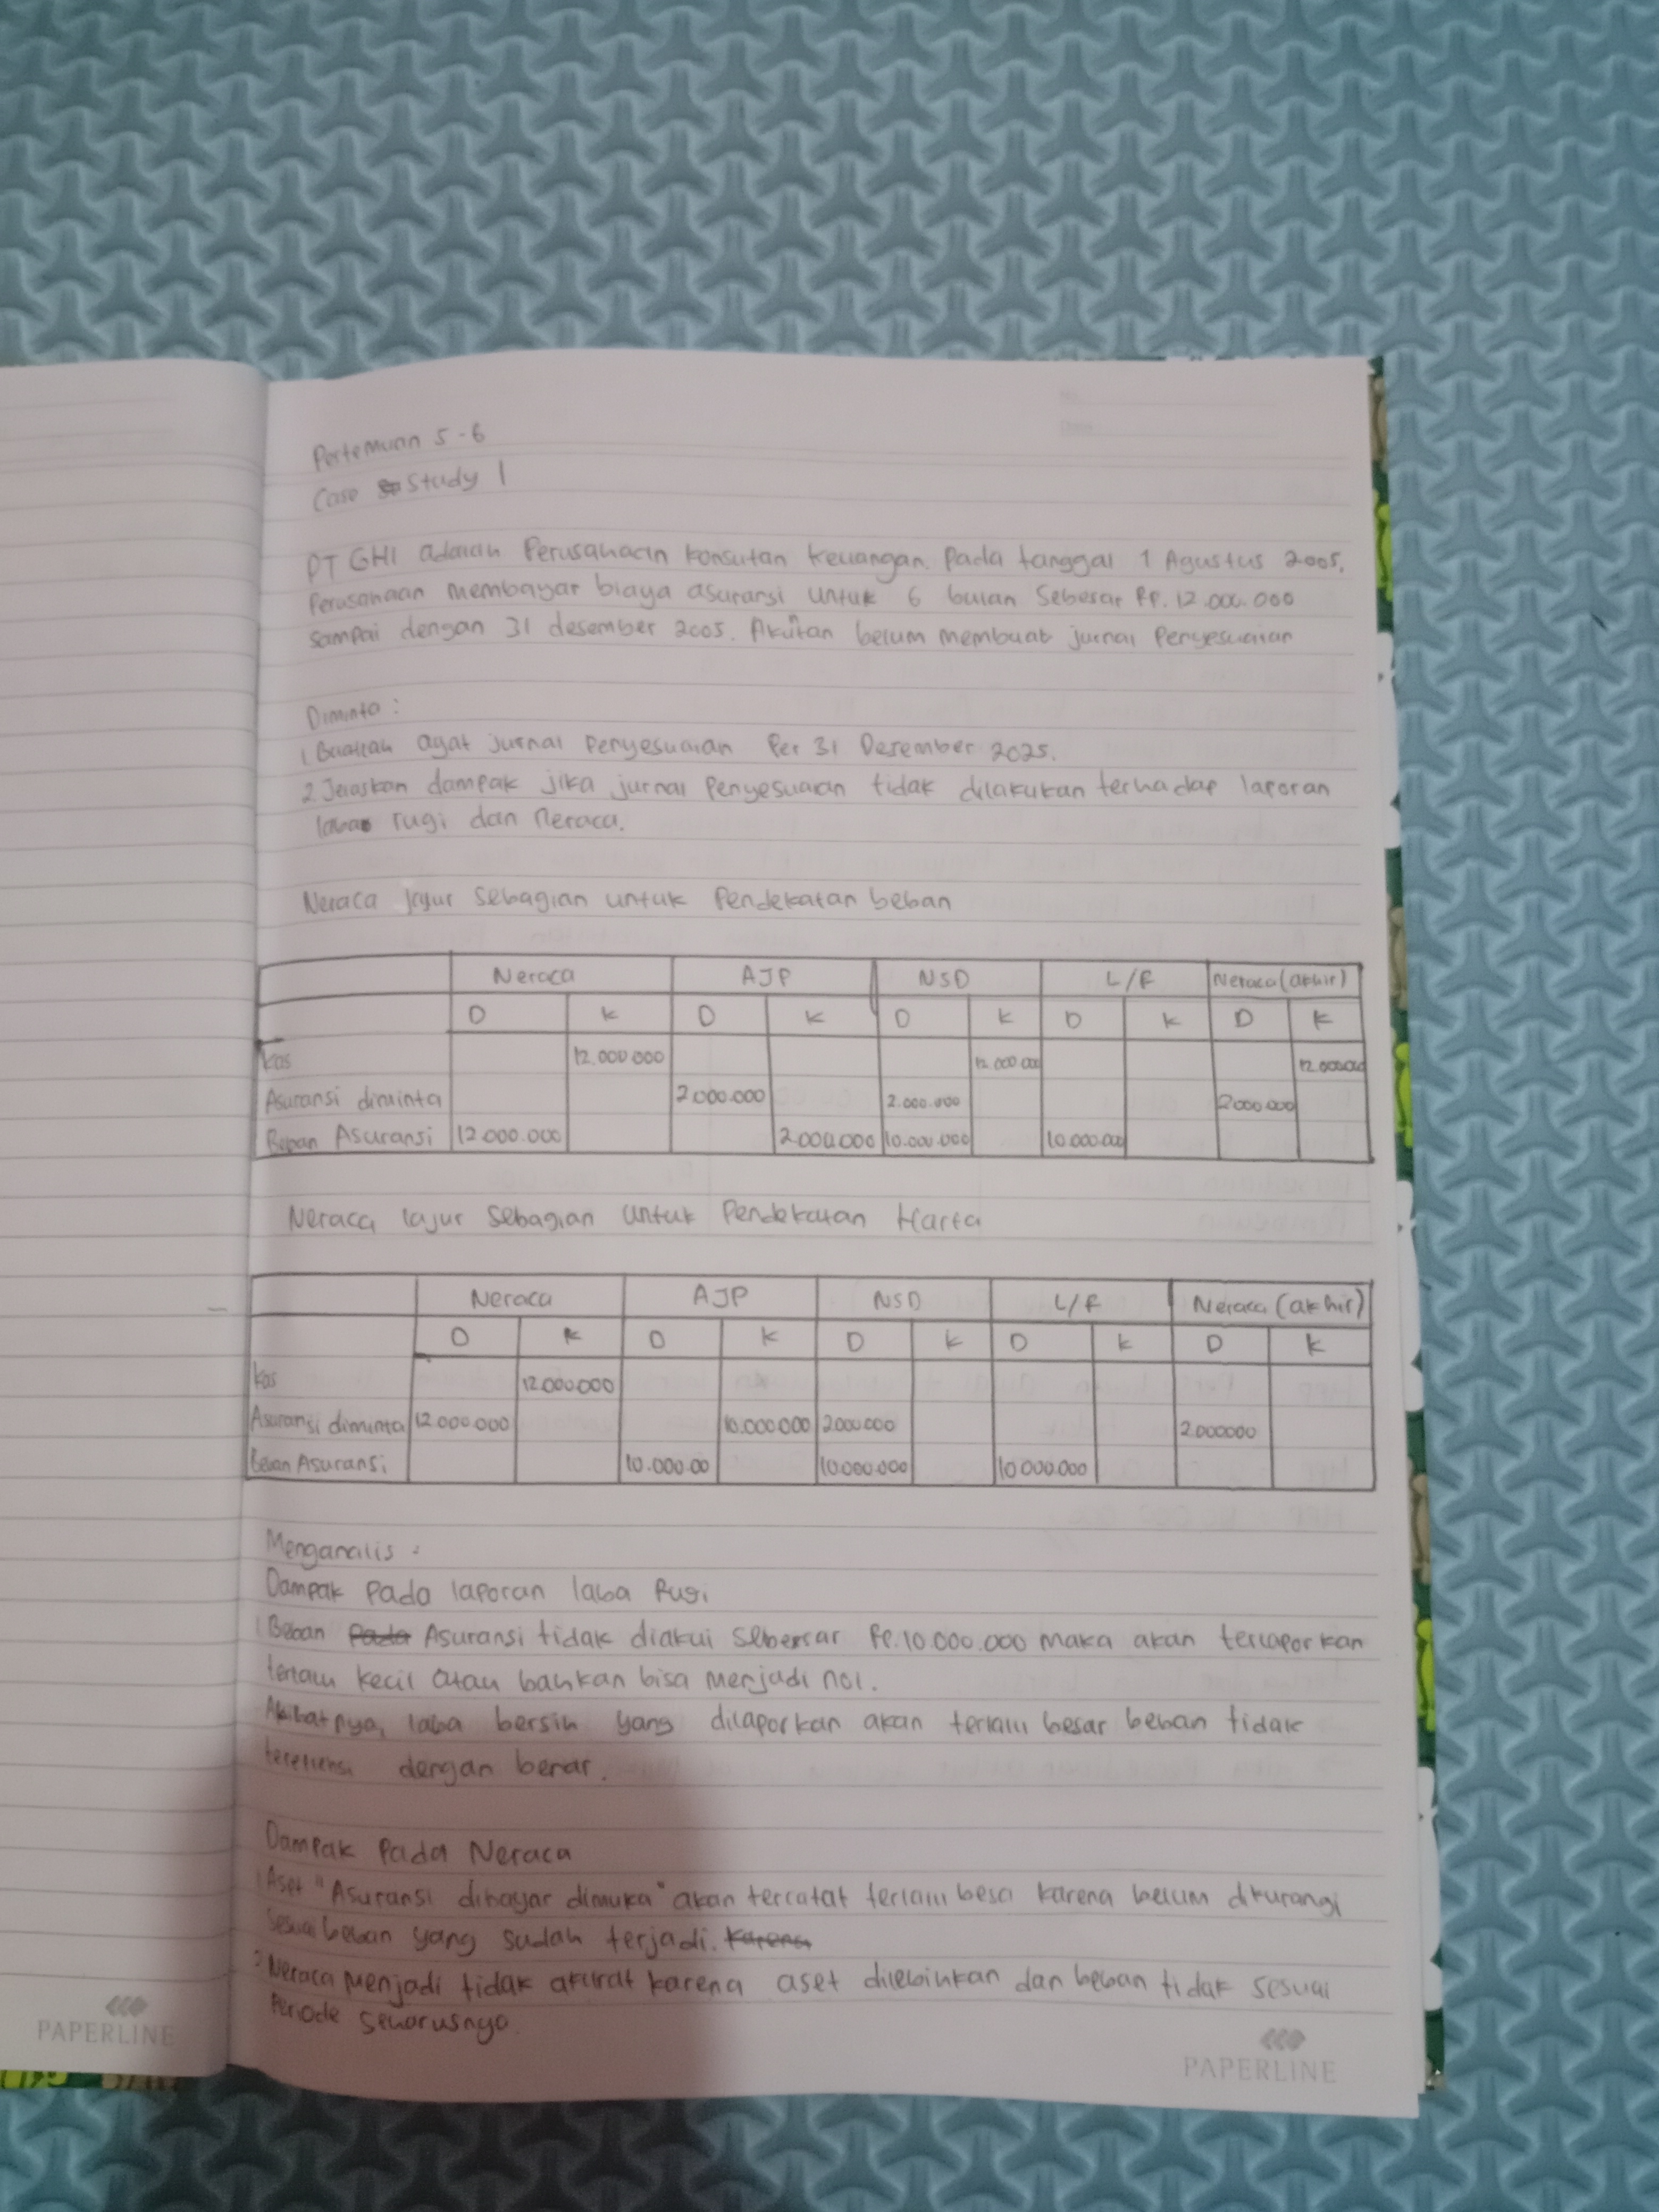 Pertemuan 5-6
Case Study 1
PT GHI adalah Perusahaan konsutan keuangan. Pada tanggal 1 Agustus 2005,
Perusahaan membayar biaya asurarsi untuk 6 bulan Sebesar Rp. 12.000.000
sampai dengan 31 desember 2005. Akutan belum membuat jurnal Penyesuaian
Diminta :
1. Buatlah ayat jurnal Penyesuaian Per 31 Desember 2025.
2. Jelaskan dampak jika jurnal Penyesuaian tidak dilakukan terhadap laporan
laba rugi dan Neraca.
Neraca lajur Sebagian untuk Pendekatan beban
Neraca AJP NSD L/R Neraca (akhir)
D K D K D K D K D K
Kas 12.000.000 12.000.000 12.000.000
Asuransi diminta 2.000.000 2.000.000 2000.000
Beban Asuransi 12.000.000 2.000.000 10.000.000 10.000.000
Neraca lajur Sebagian untuk Pendekatan Harta
Neraca AJP NSD L/R Neraca (akhir)
D K D K D K D K D K
Kas 12.000.000
Asuransi diminta 12.000.000 10.000.000 2000.000 2.000000
Beban Asuransi 10.000.00 10.000.000 10.000.000
Menganalis :
Dampak Pada laporan laba Rugi
1. Beban Pada Asuransi tidak diakui sebersar Rp.10.000.000 maka akan terlaporkan
terlalu kecil atau bahkan bisa menjadi nol.
Akibatnya, laba bersih yang dilaporkan akan terlalu besar beban tidak
dengan benar.
Dampak Pada Neraca
1. Aset "Asuransi dibayar dimuka" akan tercatat terlalu besa karena belum dikurangi
sesuai beban yang sudah terjadi. Karena
2. Neraca menjadi tidak akurat karena aset dilebihkan dan beban tidak sesuai
Periode seharusnya.
PAPERLINE
PAPERLINE